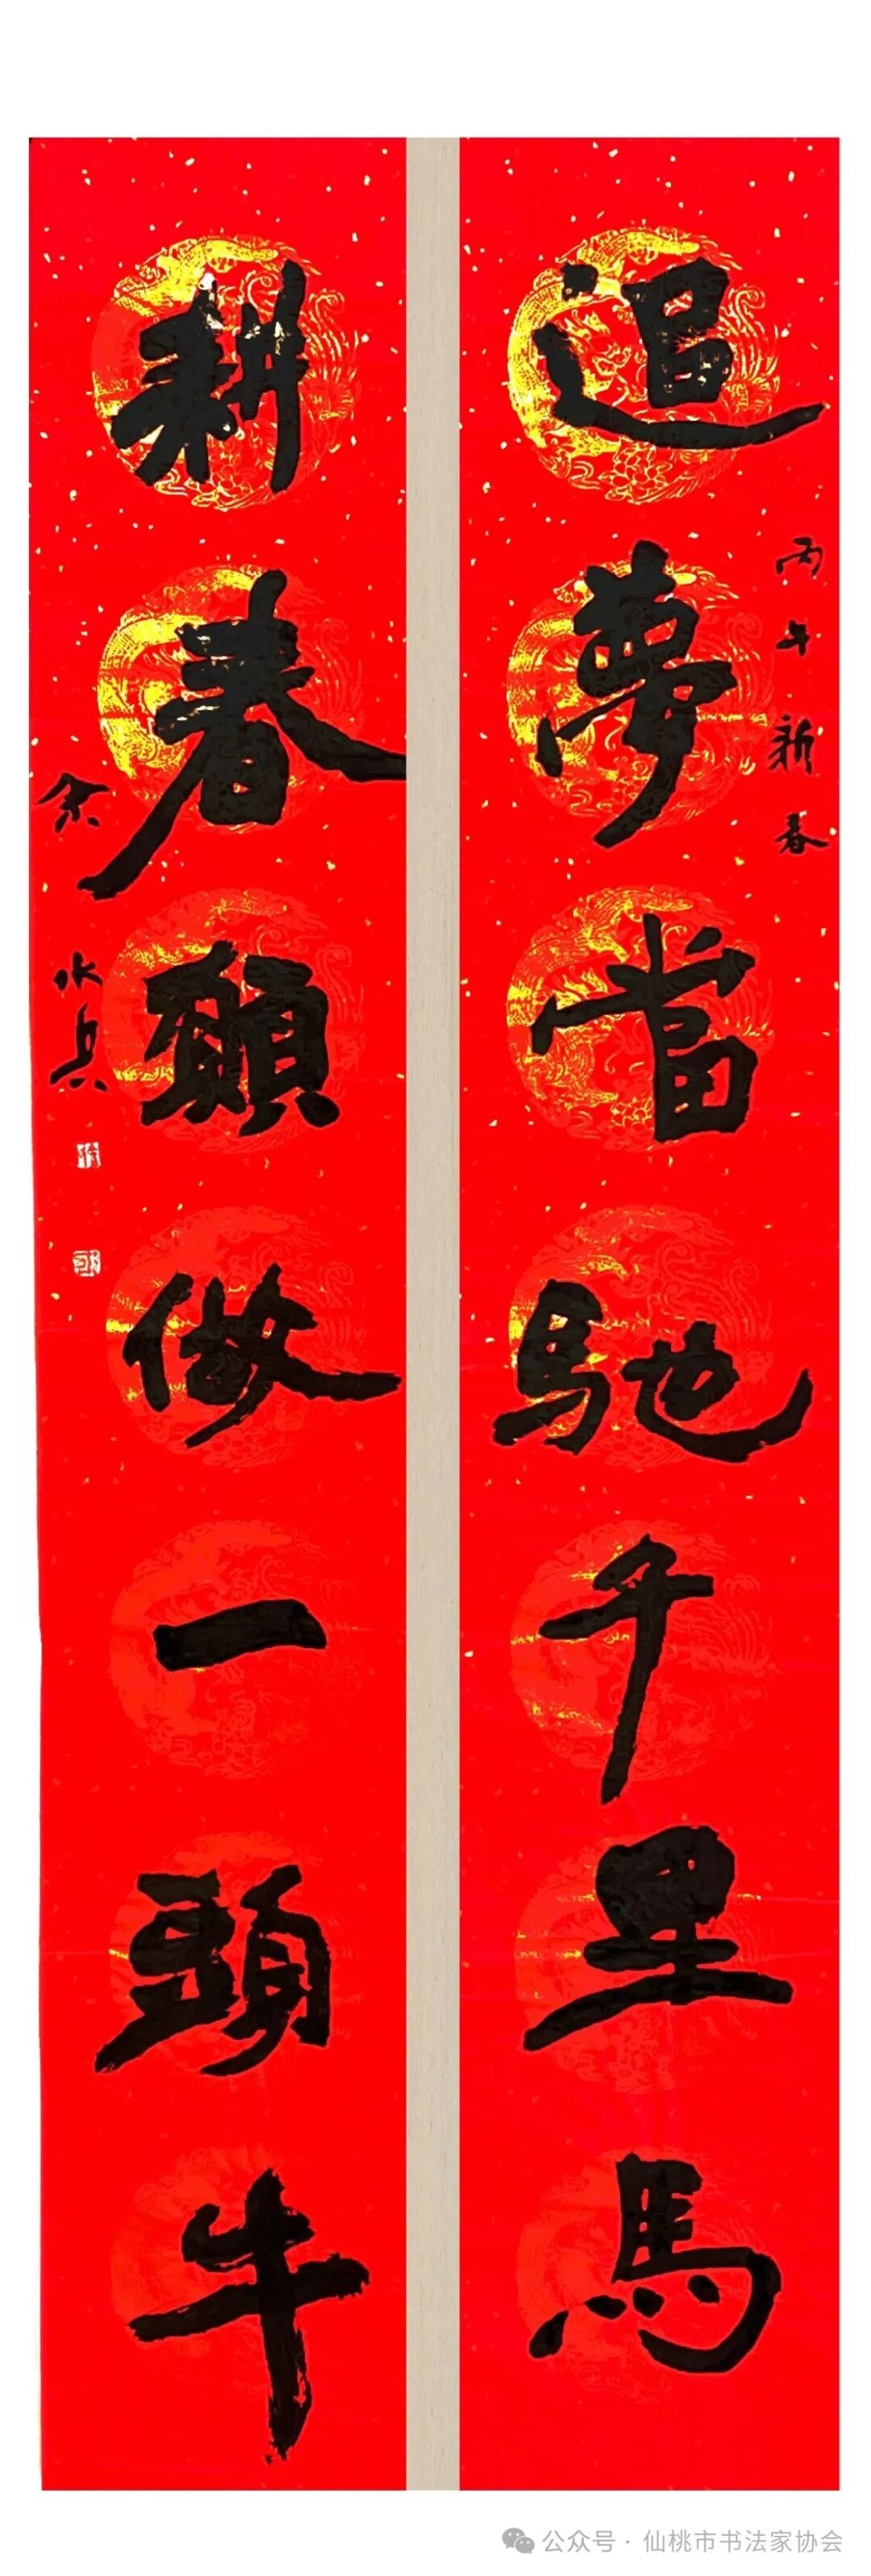 追夢當馳千里馬
丙午新春
耕春願做一頭牛
余水兵
公众号 · 仙桃市书法家协会